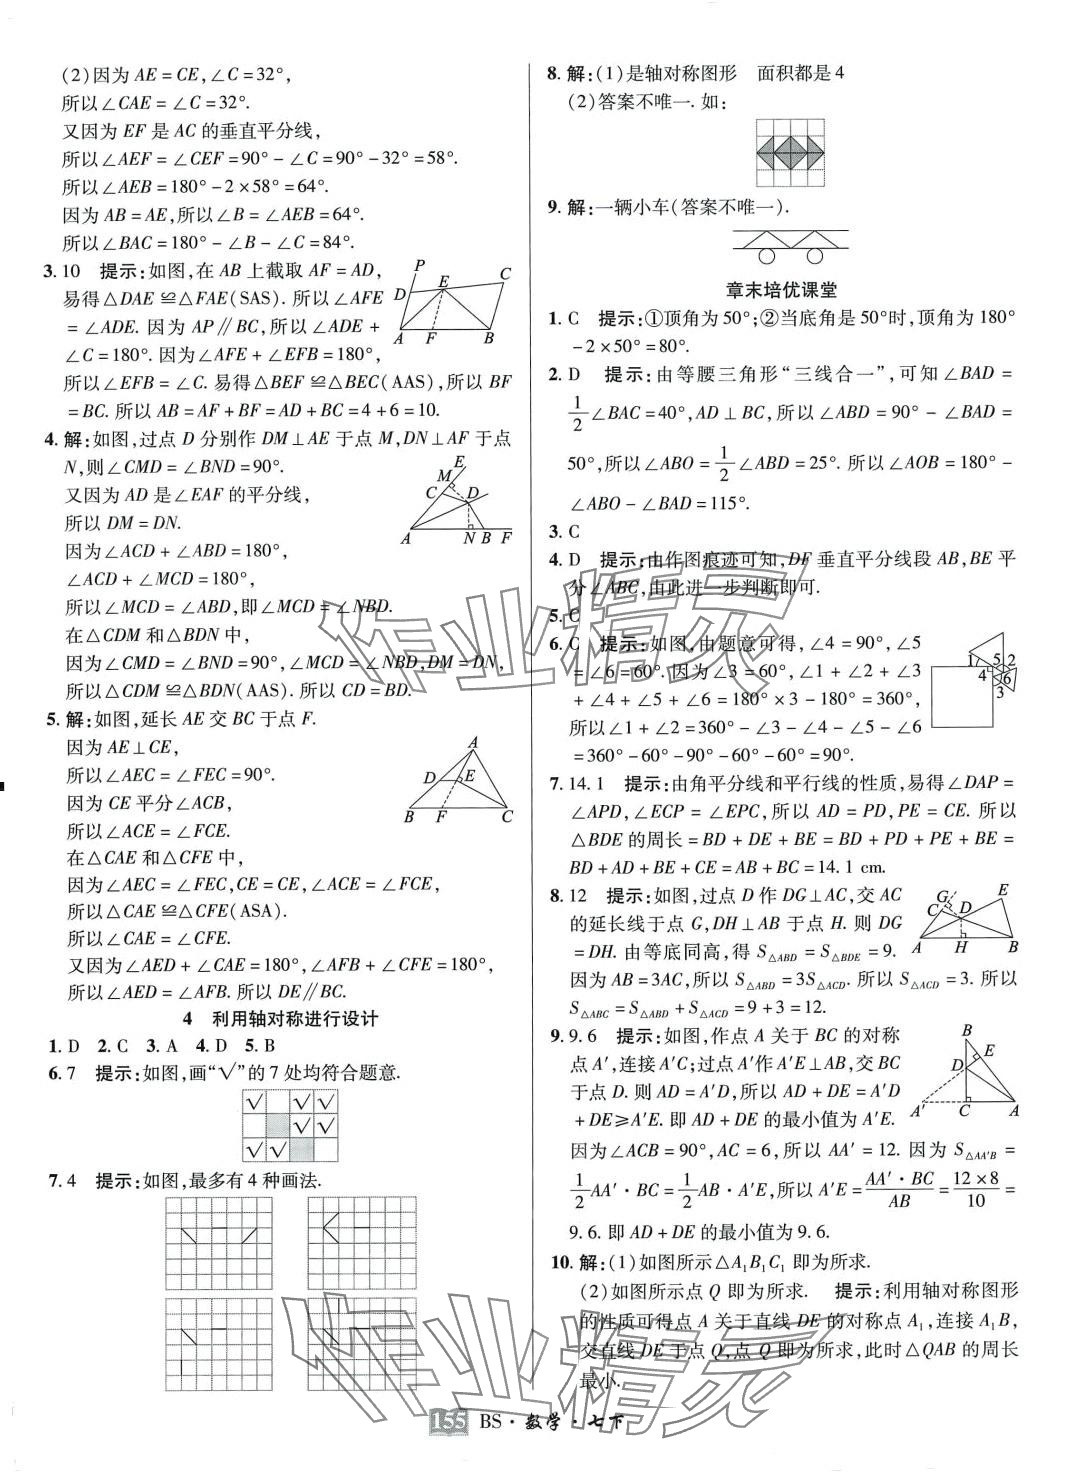 (2)因为 AE=CE,∠C=32°,
所以∠CAE=∠C=32°.
又因为 EF 是 AC 的垂直平分线,
所以∠AEF=∠CEF=90°-∠C=90°-32°=58°.
所以∠AEB=180°-2×58°=64°.
因为 AB=AE,所以∠B=∠AEB=64°.
所以∠BAC=180°-∠B-∠C=84°.
3. 10 提示:如图,在 AB 上截取 AF=AD,
易得△DAE≌△FAE(SAS). 所以∠AFE
=∠ADE. 因为 AP∥BC,所以∠ADE+
∠C=180°. 因为∠AFE+∠EFB=180°,
所以∠EFB=∠C. 易得△BEF≌△BEC(AAS),所以 BF
=BC. 所以 AB=AF+BF=AD+BC=4+6=10.
P
E
C
D
A F B
4. 解:如图,过点 D 分别作 DM⊥AE 于点 M,DN⊥AF 于点
N,则∠CMD=∠BND=90°.
又因为 AD 是∠EAF 的平分线,
所以 DM=DN.
因为∠ACD+∠ABD=180°,
∠ACD+∠MCD=180°,
所以∠MCD=∠ABD,即∠MCD=∠NBD.
在△CDM 和△BDN 中,
因为∠CMD=∠BND=90°,∠MCD=∠NBD,DM=DN,
所以△CDM≌△BDN(AAS). 所以 CD=BD.
E
M
C D
A N B F
5. 解:如图,延长 AE 交 BC 于点 F.
因为 AE⊥CE,
所以∠AEC=∠FEC=90°.
因为 CE 平分∠ACB,
所以∠ACE=∠FCE.
在△CAE 和△CFE 中,
因为∠AEC=∠FEC,CE=CE,∠ACE=∠FCE,
所以△CAE≌△CFE(ASA).
所以∠CAE=∠CFE.
又因为∠AED+∠CAE=180°,∠AFB+∠CFE=180°,
所以∠AED=∠AFB. 所以 DE∥BC.
A
D E
B F C
4 利用轴对称进行设计
1. D 2. C 3. A 4. D 5. B
6. 7 提示:如图,画“√”的 7 处均符合题意.
√ √ √
√ √
√ √
7. 4 提示:如图,最多有 4 种画法.
8. 解:(1)是轴对称图形 面积都是 4
(2)答案不唯一. 如:
9. 解:一辆小车(答案不唯一).
章末培优课堂
1. C 提示:①顶角为 50°;②当底角是 50°时,顶角为 180°
-2×50°=80°.
2. D 提示:由等腰三角形“三线合一”,可知∠BAD=
1/2∠BAC=40°,AD⊥BC,所以∠ABD=90°-∠BAD=
50°,所以∠ABO=1/2∠ABD=25°. 所以∠AOB=180°-
∠ABO-∠BAD=115°.
3. C
4. D 提示:由作图痕迹可知,DF 垂直平分线段 AB,BE 平
分∠ABC,由此进一步判断即可.
5. C
6. C 提示:如图,由题意可得,∠4=90°,∠5
=∠6=60°. 因为∠3=60°,∠1+∠2+∠3
+∠4+∠5+∠6=180°×3-180°=360°,
所以∠1+∠2=360°-∠3-∠4-∠5-∠6
=360°-60°-90°-60°-60°=90°.
1 5 2
4 6
3
7. 14.1 提示:由角平分线和平行线的性质,易得∠DAP=
∠APD,∠ECP=∠EPC,所以 AD=PD,PE=CE. 所以
△BDE 的周长=BD+DE+BE=BD+PD+PE+BE=
BD+AD+BE+CE=AB+BC=14.1 cm.
8. 12 提示:如图,过点 D 作 DG⊥AC,交 AC
的延长线于点 G,DH⊥AB 于点 H. 则 DG
=DH. 由等底同高,得 S△ABD=S△BDE=9.
因为 AB=3AC,所以 S△ABD=3S△ACD. 所以 S△ACD=3. 所以
S△ABC=S△ABD+S△ACD=9+3=12.
G E
C D
A H B
9. 9.6 提示:如图,作点 A 关于 BC 的对称
点 A′,连接 A′C;过点 A′作 A′E⊥AB,交 BC
于点 D. 则 AD=A′D,所以 AD+DE=A′D
+DE≥A′E. 即 AD+DE 的最小值为 A′E.
因为∠ACB=90°,AC=6,所以 AA′=12. 因为 S△AA′B=
1/2AA′·BC=1/2AB·A′E,所以 A′E=AA′·BC/AB=12×8/10=
9.6. 即 AD+DE 的最小值为 9.6.
B
E
D
A′ C A
10. 解:(1)如图所示△A₁B₁C₁ 即为所求.
(2)如图所示点 Q 即为所求. 提示:利用轴对称图形
的性质可得点 A 关于直线 DE 的对称点 A₁,连接 A₁B,
交直线 DE 于点 Q,点 Q 即为所求,此时△QAB 的周长
最小.
作业精灵
作业精灵
155 BS·数学·七下